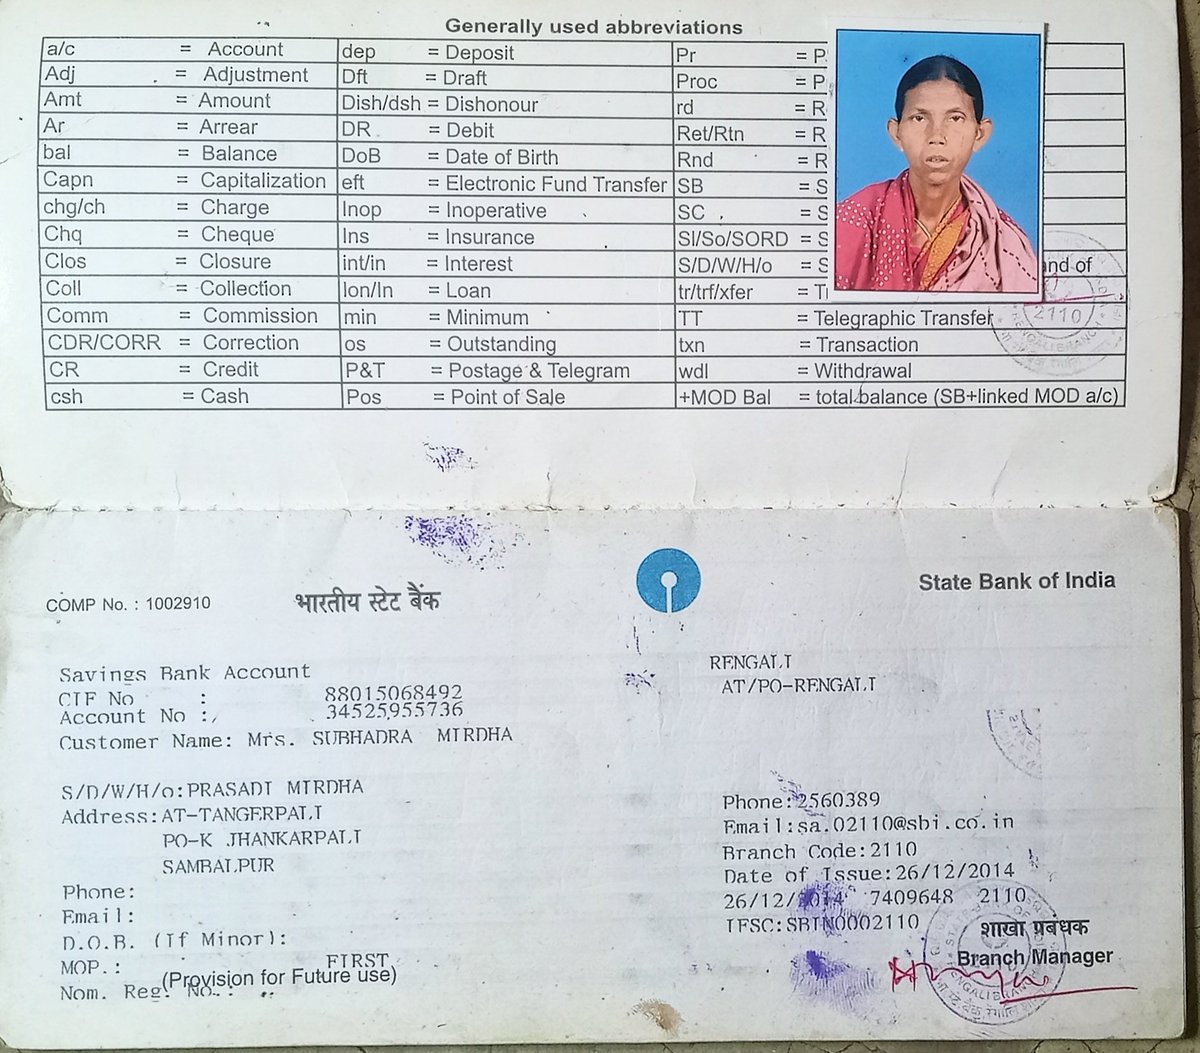 Generally used abbreviations
a/c = Account dep = Deposit Pr = P
Adj = Adjustment Dft = Draft Proc = P
Amt = Amount Dish/dsh = Dishonour rd = R
Ar = Arrear DR = Debit Ret/Rtn = R
bal = Balance DoB = Date of Birth Rnd = R
Capn = Capitalization eft = Electronic Fund Transfer SB = S
chg/ch = Charge Inop = Inoperative SC = S
Chq = Cheque Ins = Insurance SI/So/SORD = S
Clos = Closure int/in = Interest S/D/W/H/o = S and of
Coll = Collection lon/ln = Loan tr/trf/xfer = T
Comm = Commission min = Minimum TT = Telegraphic Transfer
CDR/CORR = Correction os = Outstanding txn = Transaction
CR = Credit P&T = Postage & Telegram wdl = Withdrawal
csh = Cash Pos = Point of Sale +MOD Bal = total balance (SB+linked MOD a/c)
2110
RENGALI BRANCH
COMP No. : 1002910 भारतीय स्टेट बैंक State Bank of India
Savings Bank Account
CIF No : 88015068492
Account No : 34525955736
Customer Name: Mrs. SUBHADRA MIRDHA
S/D/W/H/o:PRASADI MIRDHA
Address:AT-TANGERPALI
PO-K JHANKARPALI
SAMBALPUR
Phone:
Email:
D.O.B. (If Minor):
MOP.: FIRST
(Provision for Future use)
Nom. Reg. No. :
RENGALI
AT/PO-RENGALI
Phone:2560389
Email:sa.02110@sbi.co.in
Branch Code:2110
Date of Issue:26/12/2014
26/12/2014 7409648 2110
IFSC:SBIN0002110
शाखा प्रबंधक
Branch Manager